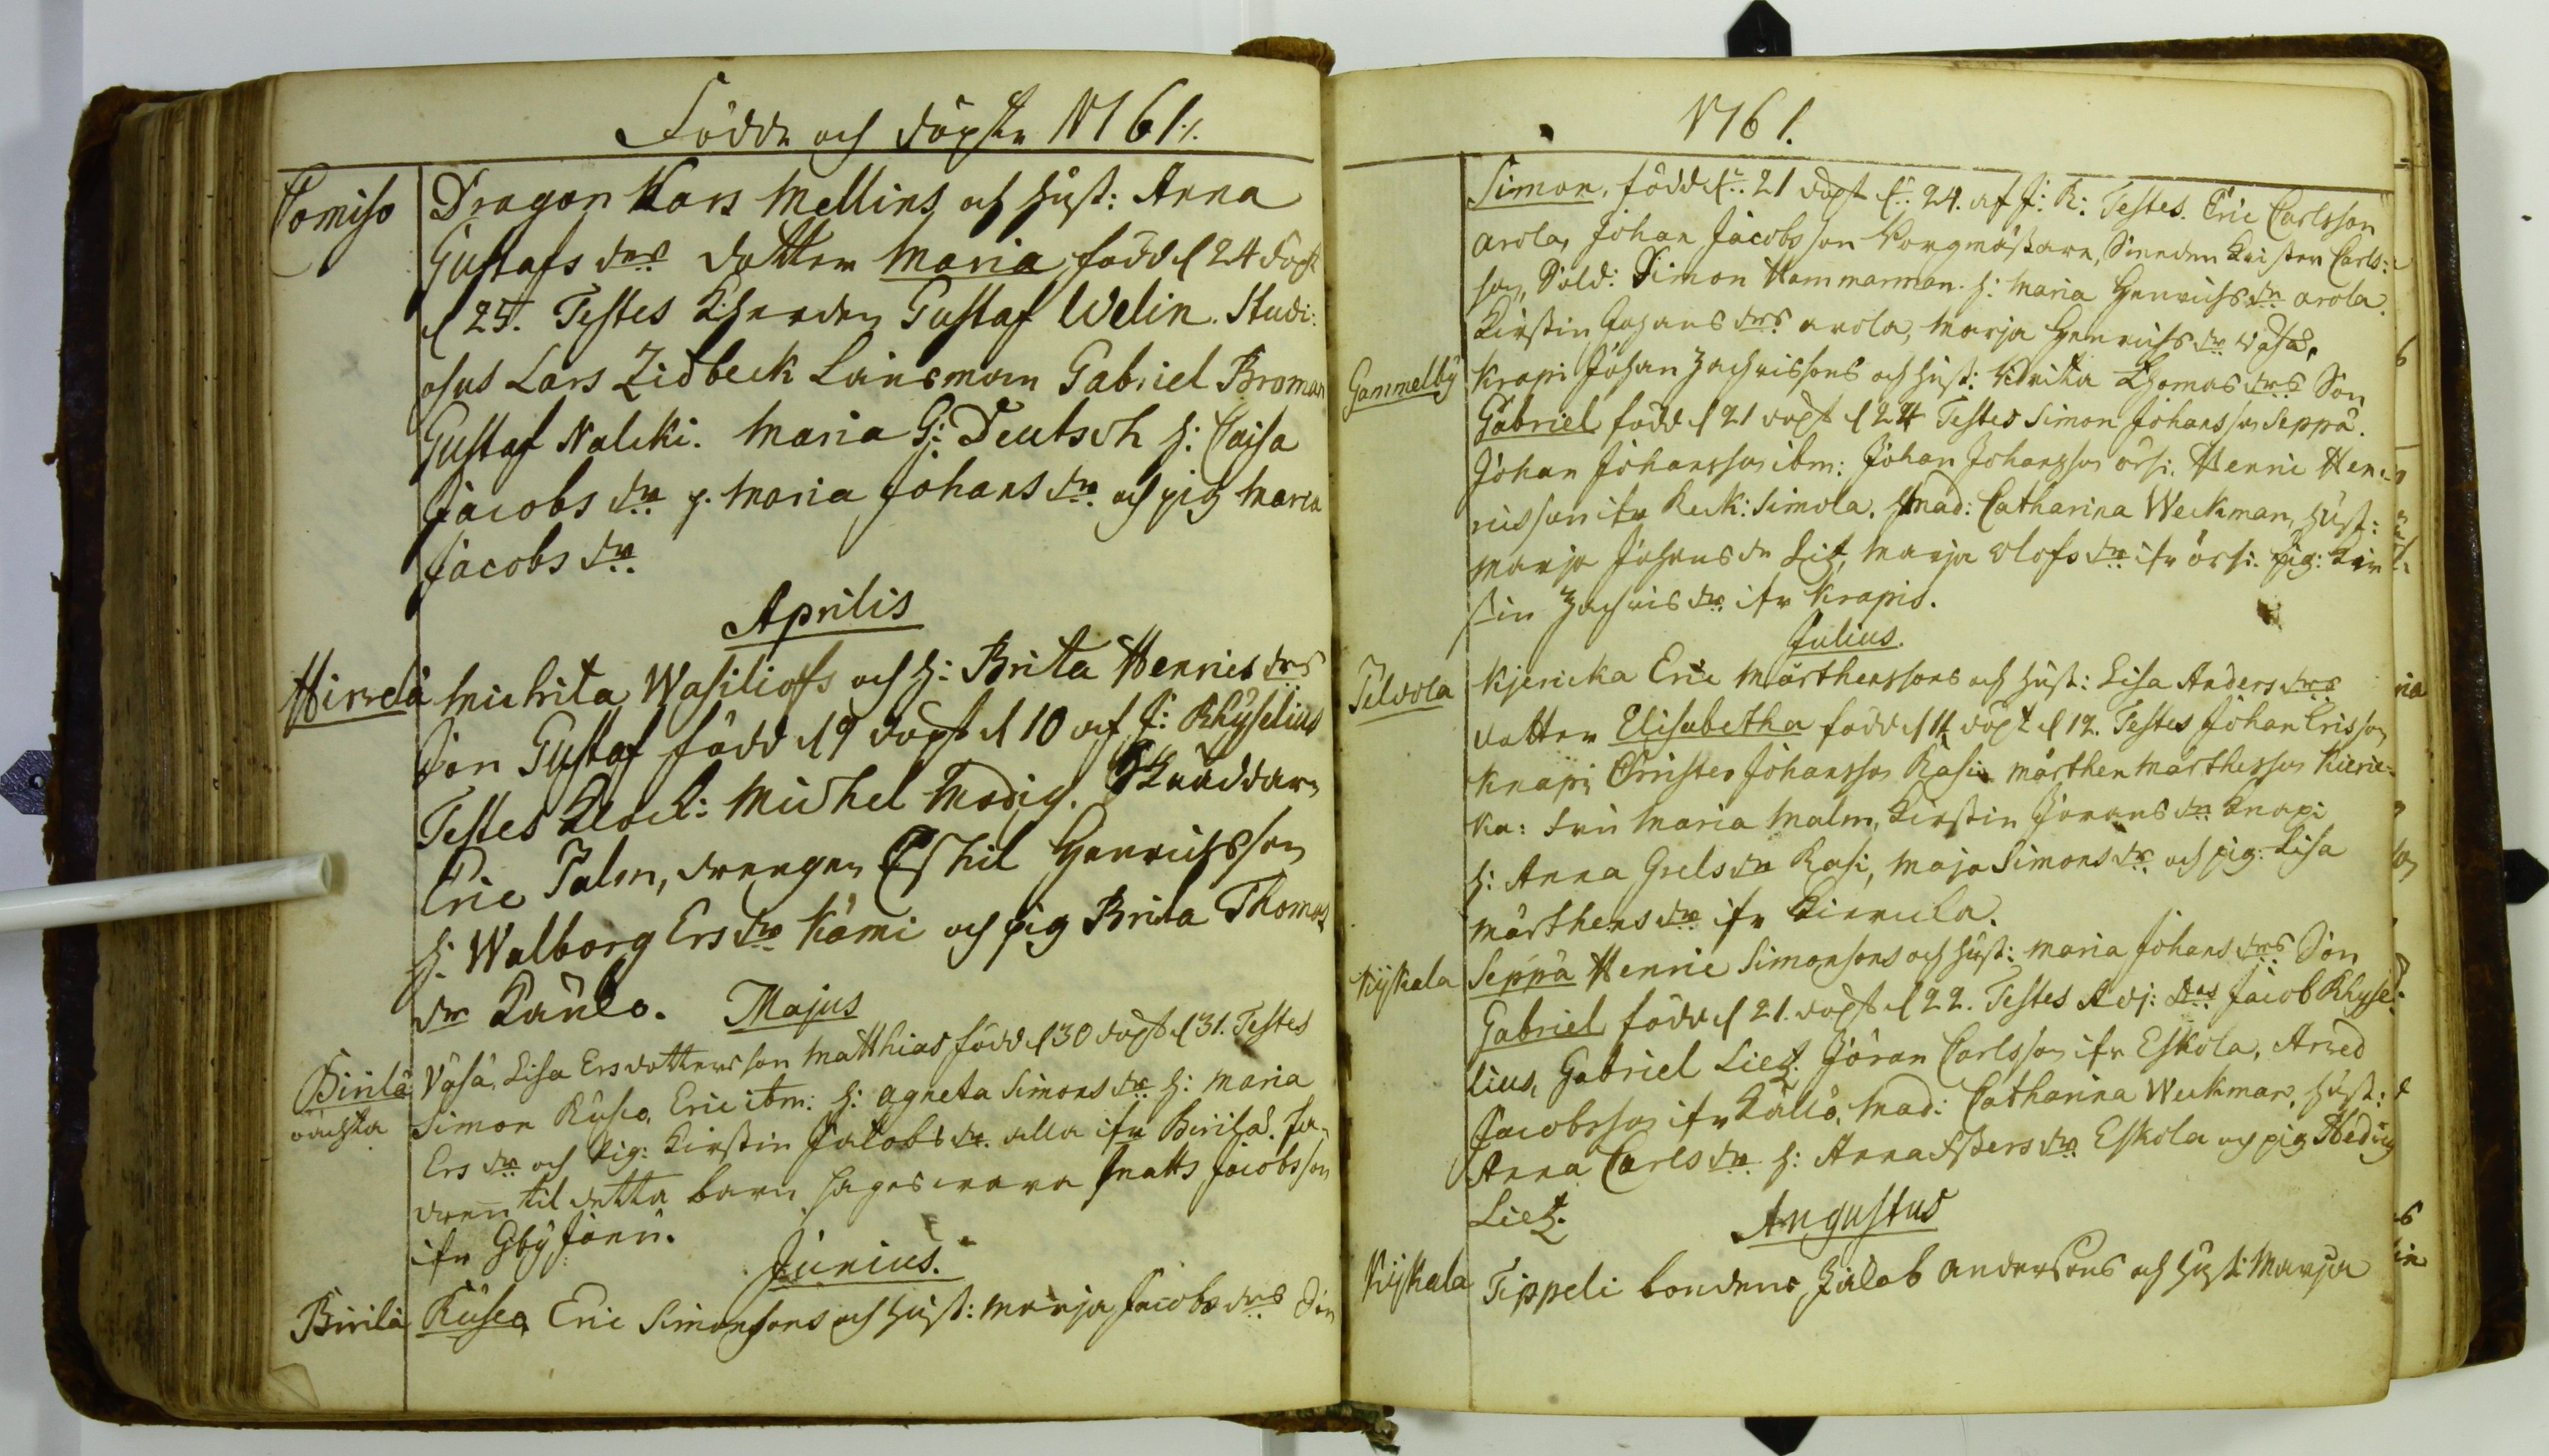 Födde och döpte 1761.
Comiso Dragon Lars Mellins och hust: Anna
Gustafs drs dotter Maria född d 24 döpt
d 25. Testes Gustaf Welin. Studi:
osus Lars Zidbeck Länsman Gabriel Broman
Gustaf Nalcki. Maria G: Deutsch h: Caisa
Jacobs dr p. Maria Johans dr och pig Maria
Jacobs dr
Aprilis
Hirvelä Michita Wasilioffs och h: Brita Henrics drs
Son Gustaf född d 9 döpt d 10 af h: Rhyselius
Testes Klock: Michel Modig. Skräddarn
Eric Palm, drengen Eskil Henrichsson
h: Walborg Ers dr Kämi och pig Brita Thomas
dr Känlo. Majus
Birilä Väsä Lisa Ersdotters son Matthias född d 30 döpt d 31. Testes
oächta Simon Rusco. Eric ibm: h: Agneta Simons dr h: Maria
Ers dr och pig: Kirstin Jacobs dr alla ifr Birilä. Fa-
dren til detta barn sages vara Matts Jacobsson
ifr Gby Jorri.
Junius.
Birilä Rusco Eric Simonsons och hust: Marja Jacobs drs Son
1761.
Simon, född d: 21 döpt d: 24. af h: R: Testes. Eric Carlsson
Arola, Johan Jacobsson Borgmästare, Svenden Kristen Carls:
son, Sold: Simon Hammarman. h: Maria Henrichs dr Arola.
Kirstin Johans drs Arola, Marja Henrichs dr Väsä.
Gammelby Krapi Johan Zachrissons och hust: Brita Thomas drs Son
Gabriel född d 21 döpt d 24 Testes Simon Johansson Seppä.
Johan Johansson ibm: Johan Johansson örsi: Henric Hen-
ricsson ifr Keck: Simola. Mad: Catharina Weckman, hust:
Marja Johans dr Litz, Marja Olofs dr ifr örsi: pig: Kir
stin Zachris dr ifr Krapis.
Julius.
Teldola Kjericka Eric Mårthenssons och hust: Lisa Anders drs
dotter Elisabetha född d 11 döpt d 12. Testes Johan Ersson
Knapi Christer Johansson Rasi Mårthen Mårthensson Kieric-
ka: Fru Maria Malm, Kirstin Jörans dr Knapi
h: Anna Grels dr Rasi, Maja Simons dr och pig: Lisa
Mårthens dr ifr Kirvula.
Kyskala Seppä Henric Simonsons och hust: Maria Johans drs Son
Gabriel född d 21. döpt d 22. Testes Adj: Jacob Rhyse-
lius, Gabriel Lietz. Jöran Carlsson ifr Eskola, Arved
Jacobsson ifr Källo. Mad: Catharina Weckman. hust:
Anna Carls dr h: Anna Assers dr Eskola och pig Hedvig
Lietz.
Augustus
Kyskala Tippeli bondens Jacob Andersons och hust: Marja